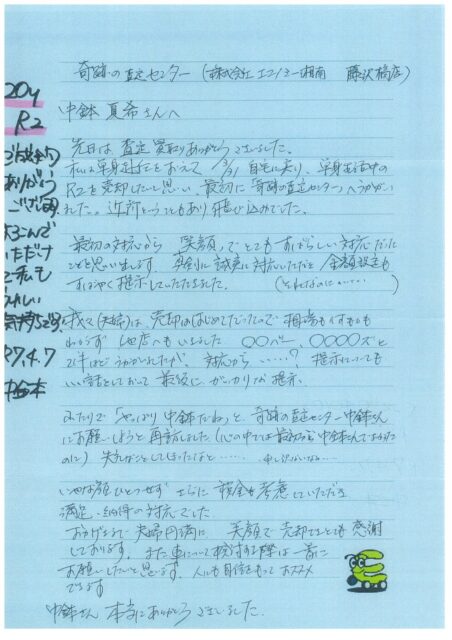 奇跡の査定センター (株式会社エコノミー湘南 藤沢橋店)
中鉢 夏希さんへ
先日は 査定 買取り ありがとうございました。
私は単身赴任をおえて 3/31 自宅に戻り、単身生活中の
R2を売却したいと思い 最初に 奇跡の査定センターへうかがい
ました。近所ということもあり 飛び込みでした。
最初の対応から 笑顔で とてもすばらしい対応だった
ことを思い出します。真剣に 誠実に対応いただき 金額提示も
すばやく 提示していただきました。 (それなのに……)
我々(夫婦)は、売却ははじめてだったので 相場もなにも
わからず 他店へもいきました ○○バー、○○○○ズと
2件ほどうかがいましたが、対応から ……? 提示についても
いい話をしておって 最後に がっかりな提示。
ふたりで「やっぱり 中鉢さんだね」と 奇跡の査定センター 中鉢さん
にお願いしようと 再訪しました (心の中では最初から 中鉢さんできまってた
のに) 失礼なことしてしまったなと……
いやな顔ひとつせず さらに 税金も考慮していただき
満足・納得の対応でした
おかげさまで 夫婦円満に 笑顔で 売却でき とても 感謝
しております。 また 車について検討する際は 一番に
お願いしたいと思います。 人にも自信をもって おススメ
できます
中鉢さん 本当にありがとうございました。
R2
ご成約
ありがとう
ございます
よろこんで
いただけ
て私も
うれしい
気持ちです。
R7.4.7